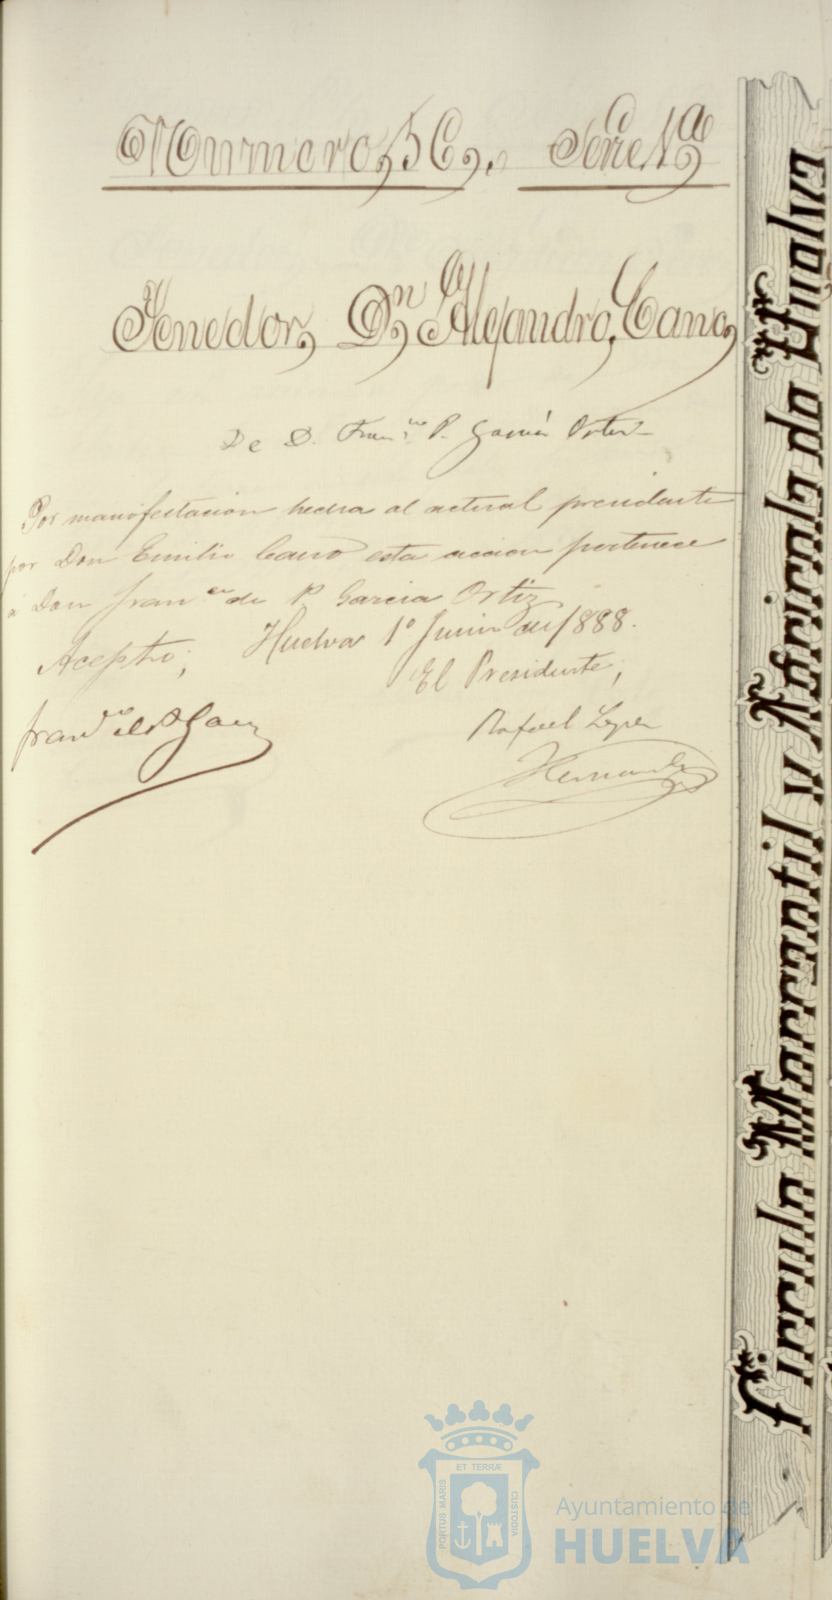 Numero, 56,. Serie 1ª
Tenedor, Dn Alejandro, Cano,
De D. Franco P. Garcia Ortiz
Por manifestacion hecha al actual presidente
por Don Emilio Cano esta accion pertenece
á Don Franco de P Garcia Ortiz
Huelva 1º Junio de 1888.
Acepto;
El Presidente,
Franco de P Garcia
Rafael Lopez
Hernandez
Círculo Mercantil y Agrícola de Huelva
PORTUS MARIS ET TERRÆ CUSTODIA
Ayuntamiento de
HUELVA